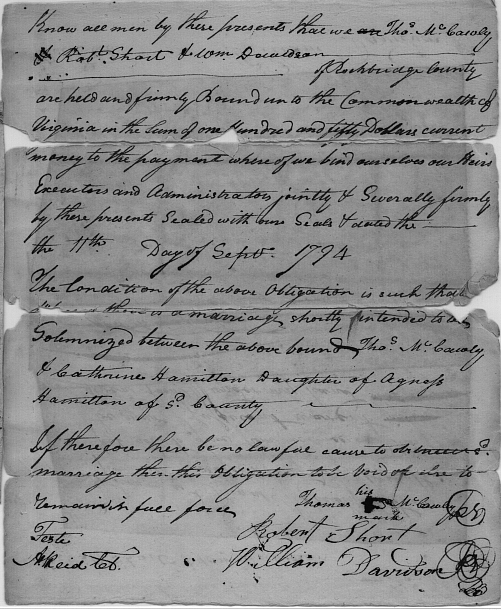 Know all men by these presents that we are Thos. McCawly
& Robt. Short & Wm. Davidson
of Rockbridge County
are held and firmly Bound unto the Commonwealth of
Virginia in the Sum of one Hundred and fifty Dollars current
money to the payment where of we bind ourselves our Heirs
Executors and Administrators jointly & Severally firmly
by these presents Sealed with our Seals & dated the
the 11th. Day of Septr. 1794
The Condition of the above Obligation is such that
there is a marriage shortly intended to be
Solemnized between the above bound Thos. McCawly
& Cathrine Hamilton Daughter of Agness
Hamilton of sd. County
If therefore there be no lawful cause to obstruct sd.
marriage then this Obligation to be Void or else to
remain in full force
Thomas his mark McCawly
Teste Robert Short
A. Reid Ct. William Davidson